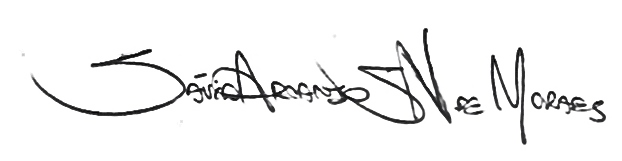 Sávio Arcanjo S N de Moraes